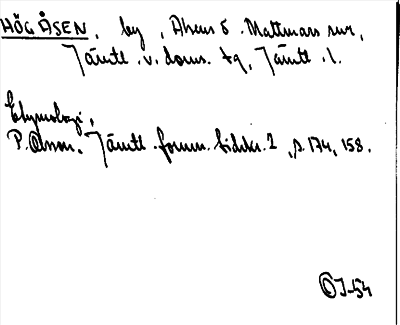 HÖGÅSEN, by, Åheus o Mattmars snr,
Jämtl. v. doms. tg, Jämtl. l.
Etymologi,
P. Olsson, Jämtl. fornm. tidskr. 2, s. 174, 158.
OJ-54